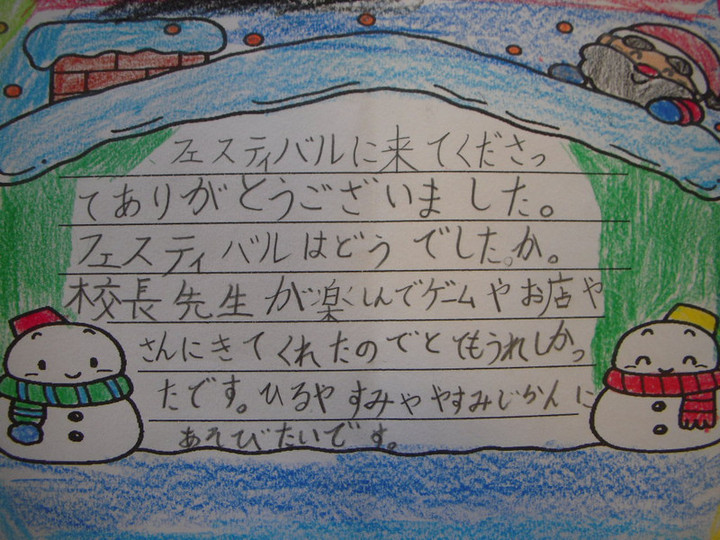 フェスティバルに来てくださっ
てありがとうございました。
フェスティバルはどうでしたか。
校長先生が楽しんでゲームやお店や
さんにきてくれたのでとてもうれしかっ
たです。ひるやすみややすみじかんに
あそびたいです。